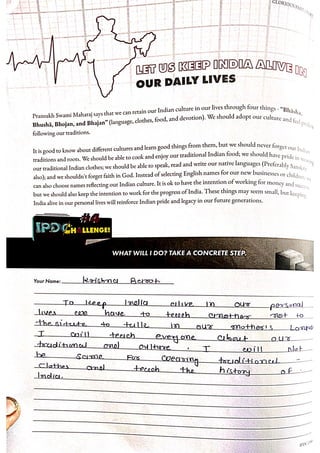 GLORIOUS PAST
LET US KEEP INDIA ALIVE IN
OUR DAILY LIVES
Pramukh Swami Maharaj says that we can retain our Indian culture in our lives through four things - "Bhasha,
Bhusha, Bhojan, and Bhajan" (language, clothes, food, and devotion). We should adopt our culture and feel
following our traditions.
It is good to know about different cultures and learn good things from them, but we should never forget our Indian
traditions and roots. We should be able to cook and enjoy our traditional Indian food; we should have pride in
our traditional Indian clothes; we should be able to speak, read and write our native languages (Preferably
also), and we shouldn't forget faith in God. Instead of selecting English names for our new businesses or children,
can also choose names reflecting our Indian culture. It is ok to have the intention of working for money and
but we should also keep the intention to work for the progress of India. These things may seem small, but keeping
India alive in our personal lives will reinforce Indian pride and legacy in our future generations.
IPDC #4
CHALLENGE!
WHAT WILL I DO? TAKE A CONCRETE STEP.
Your Name: Krishna
To keep India alive in our personal
lives we have to teach another not to
to talk in our mother's
I will teach everyone about our
traditional and culture. I will not
be For wearing traditional -
clothes and teach the history of -
India.